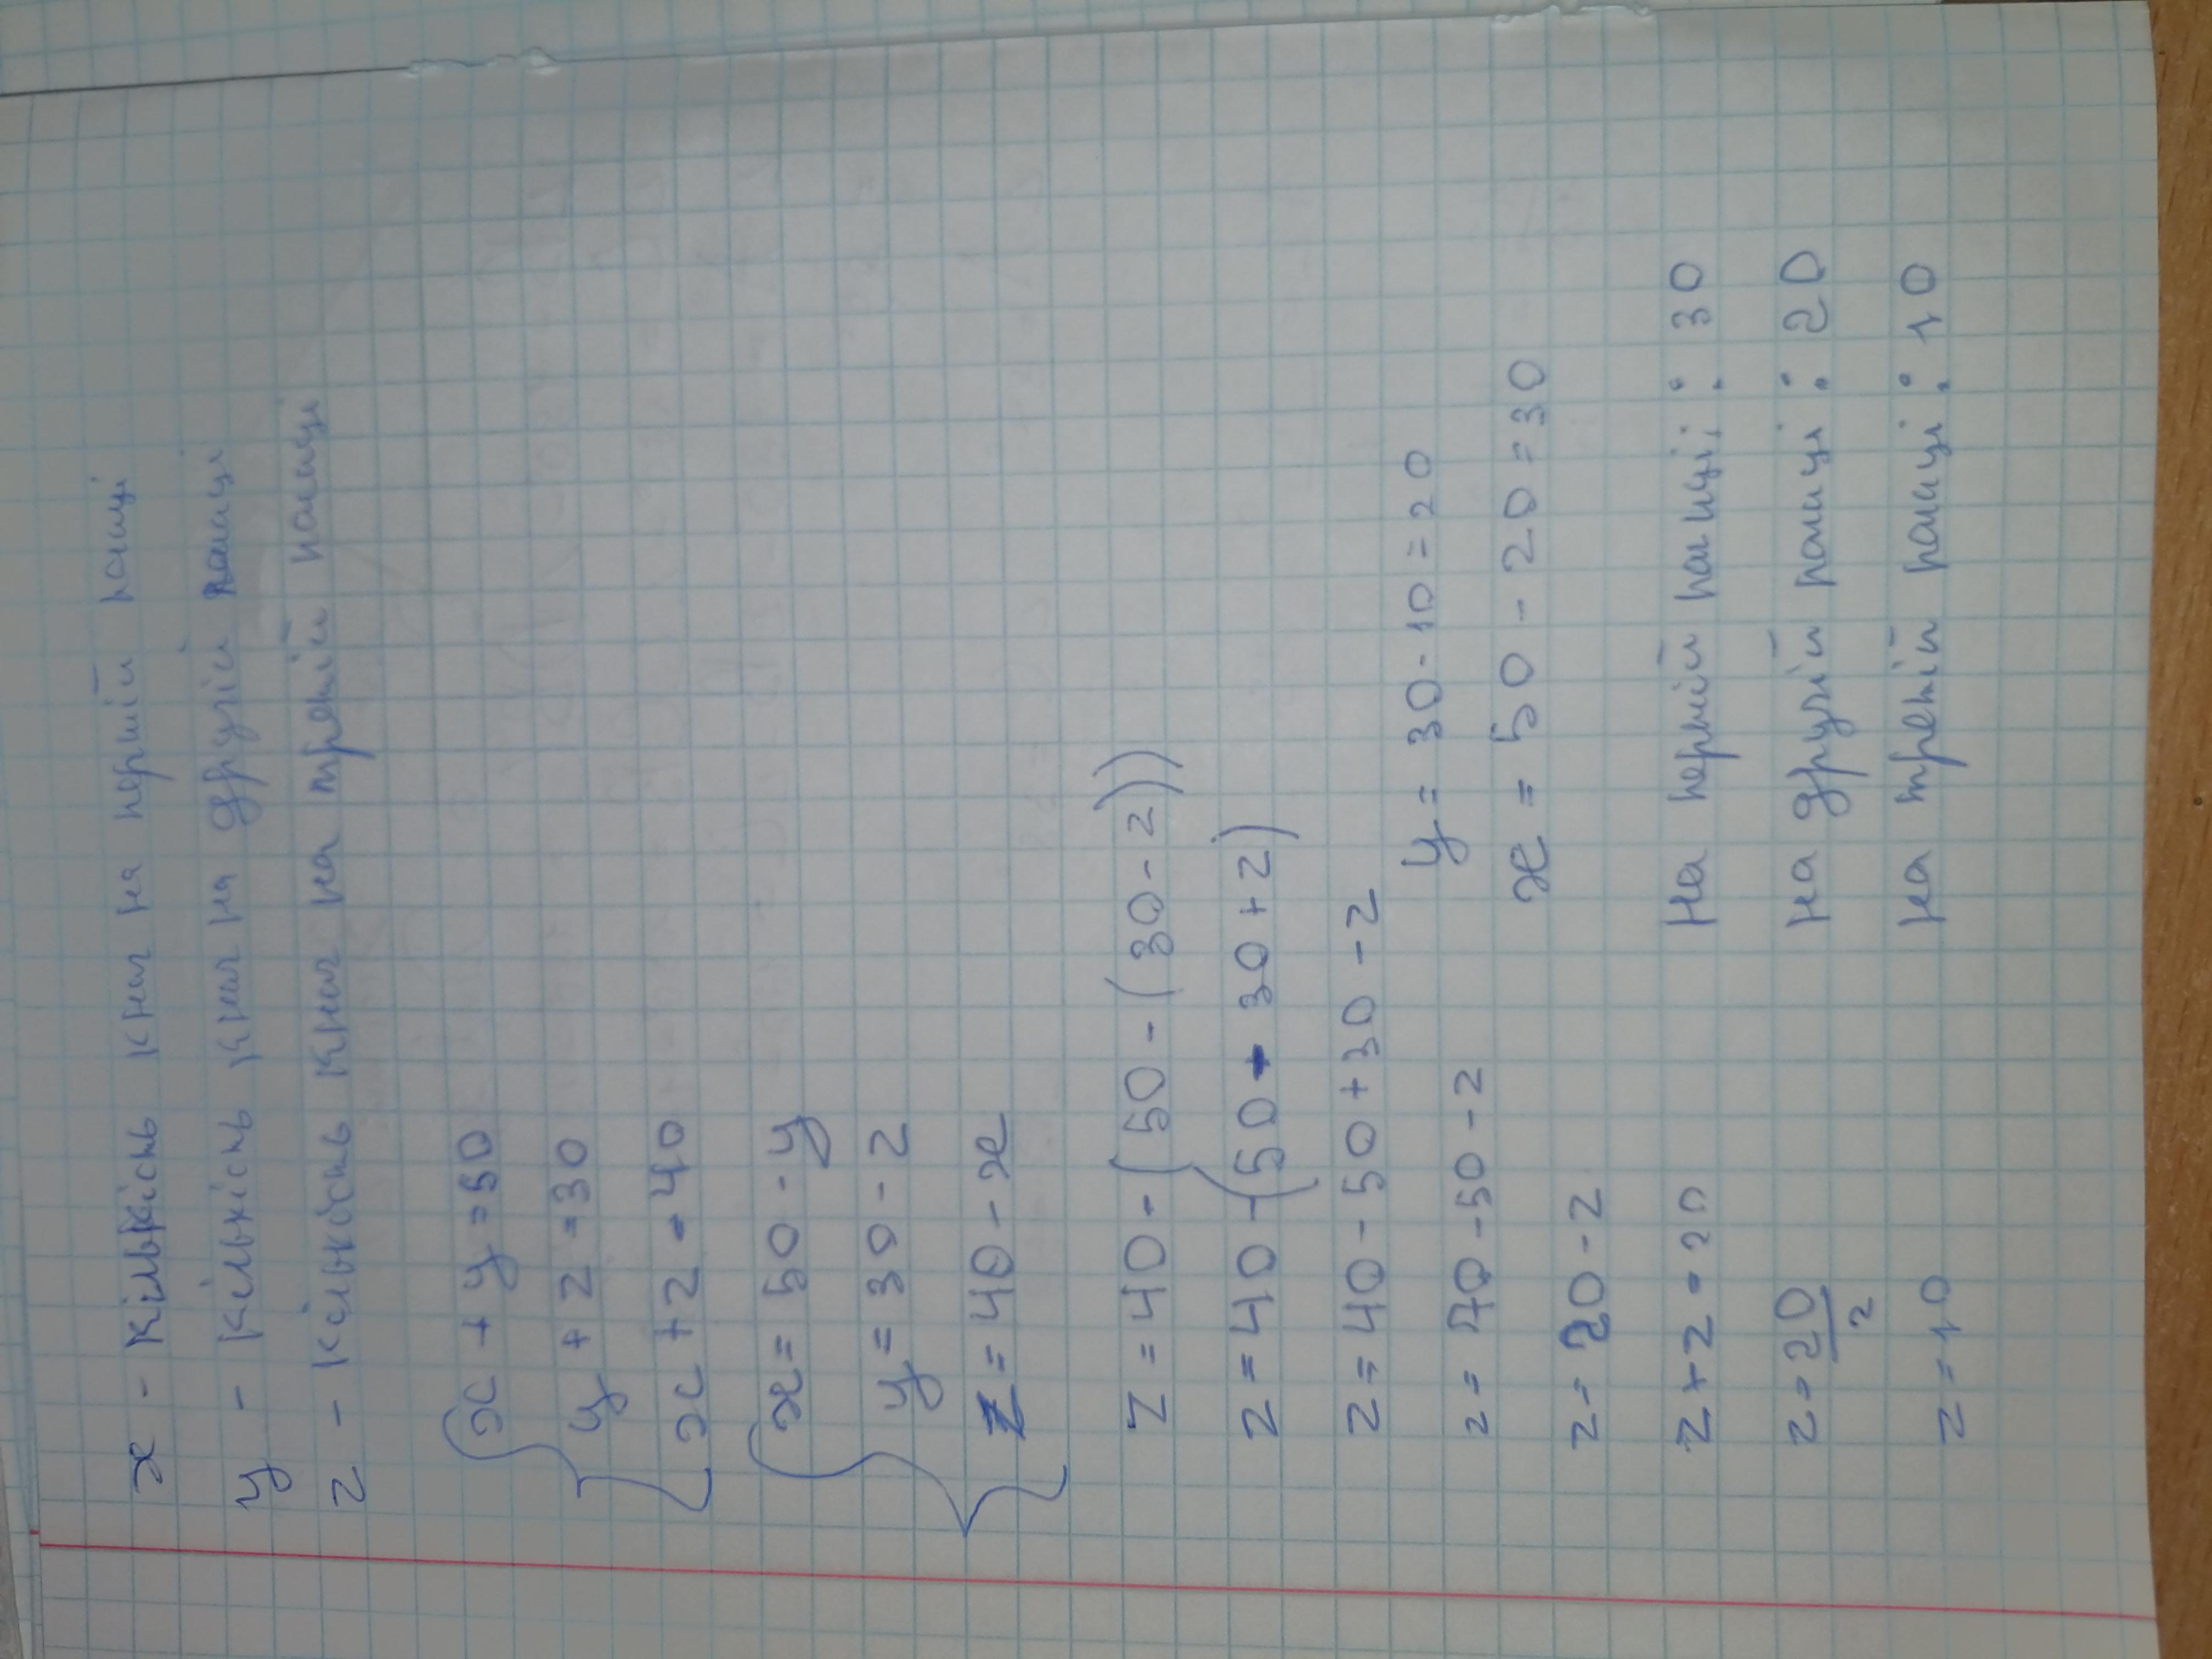 x - Кількість книг на першій полиці
y - Кількість книг на другій полиці
z - Кількость книг на третій полиці
x + y = 50
y + z = 30
x + z = 40
x = 50 - y
y = 30 - z
z = 40 - x
z = 40 - (50 - (30 - z))
z = 40 - (50 - 30 + z)
z = 40 - 50 + 30 - z
z = 70 - 50 - z
z = 20 - z
z + z = 20
z = 20/2
z = 10
y = 30 - 10 = 20
x = 50 - 20 = 30
На першій полиці: 30
На другій полиці: 20
На третій полиці: 10